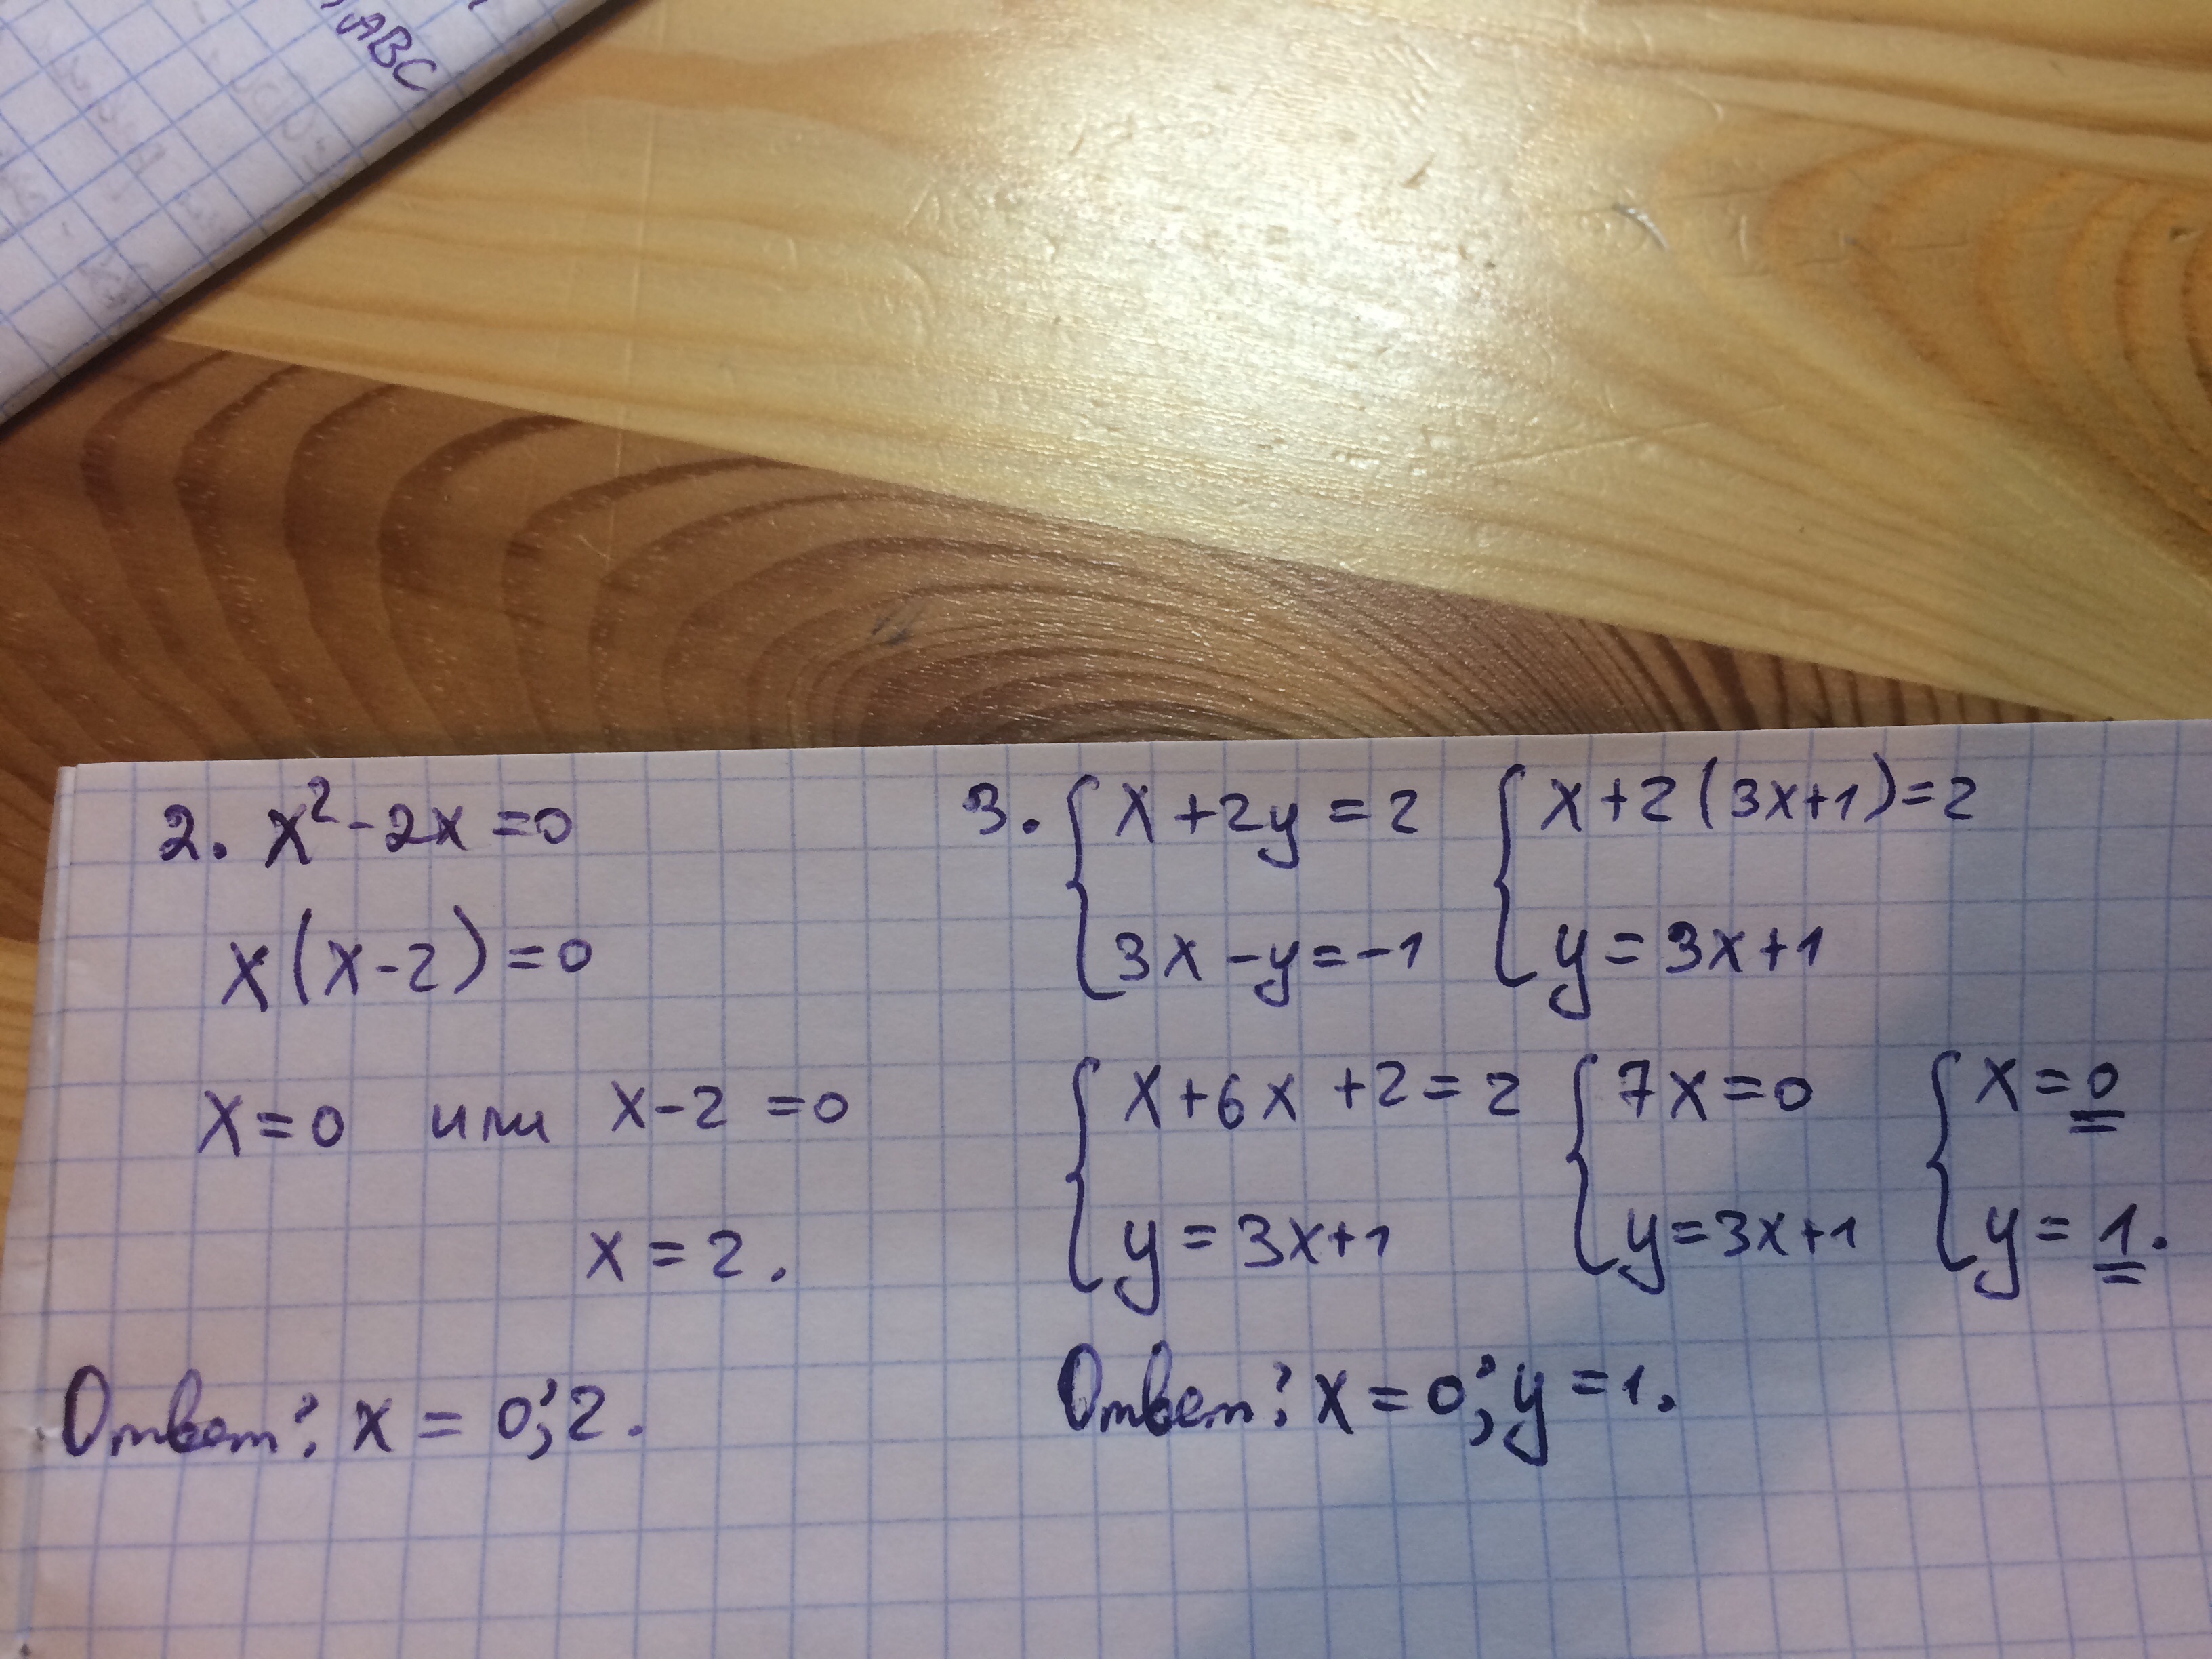 ABC
2. x² - 2x = 0
x(x-2) = 0
x = 0 или x - 2 = 0
x = 2.
Ответ: x = 0; 2.
3. { x + 2y = 2 { x + 2(3x+1) = 2
3x - y = -1 y = 3x+1
{ x + 6x + 2 = 2 { 7x = 0 { x = 0
y = 3x+1 y = 3x+1 y = 1.
Ответ: x = 0; y = 1.